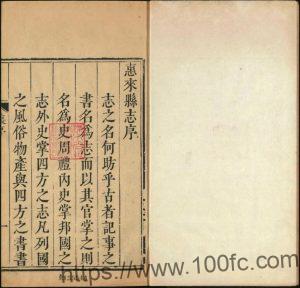 惠來縣志序
志之名何昉乎古者記事之
書名爲志而以其官掌之則
名爲史周禮内史掌邦國之
志外史掌四方之志凡列國
之風俗物産與四方之書書
https://www.100fc.com